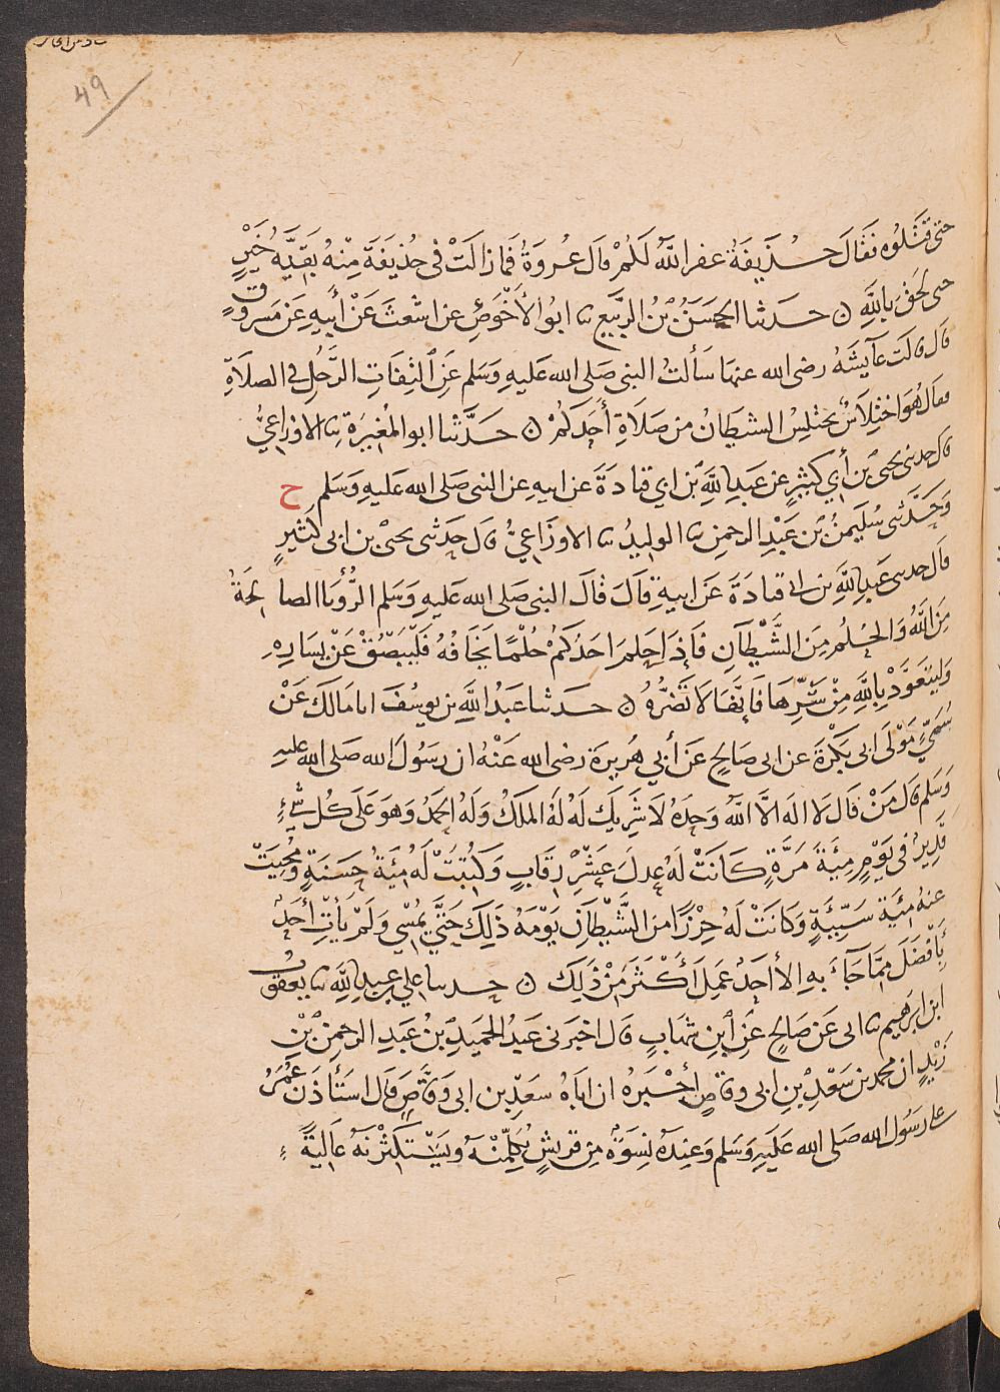 سادس من البخاري
49
حتى قتلوه فقال حذيفة غفر الله لكم قال عروة فما زالت في حذيفة منه بقية خير
حتى لحق بالله ن حدثنا الحسن بن الربيع ثنا ابو الأحوص عن اشعث عن أبيه عن مسروق
قال قالت عآيشة رضى الله عنها سألت النبى صلى الله عليه وسلم عن التفات الرجل في الصلاة
فقال هو اختلاس يختلس الشيطان من صلاة أحدكم ن حدثنا ابو المغيرة ثنا الاوزاعي
قال حدثنى يحيى بن أبي كثير عن عبد الله بن ابي قتادة عن ابيه عن النبى صلى الله عليه وسلم ح
وحدثنى سليمن بن عبد الرحمن ثنا الوليد ثنا الاوزاعي قال حدثنى يحيى بن ابى كثير
قال حدثنى عبد الله بن ابى قتادة عن ابيه قال قال النبى صلى الله عليه وسلم الرؤيا الصالحة
من الله والحلم من الشيطان فاذا حلم احدكم حلما يخافه فليبصق عن يساره
وليتعوذ بالله من شرها فانها لا تضره ن حدثنا عبد الله بن يوسف انا مالك عن
سمي مولى ابى بكرة عن ابى صالح عن أبي هريرة رضى الله عنه ان رسول الله صلى الله عليه
وسلم قال من قال لا اله الا الله وحده لا شريك له له الملك وله الحمد وهو على كل شيء
قدير في يوم مئة مرة كانت له عدل عشر رقاب وكتبت له مئة حسنة ومحيت
عنه مئة سيئة وكانت له حرزا من الشيطان يومه ذلك حتى يمسي ولم يأت أحد
بأفضل مما جآء به الا أحد عمل أكثر من ذلك ن حدثنا علي بن عبد الله ثنا يعقوب
ابن ابرهيم ثنا ابى عن صالح عن ابن شهاب قال اخبرنى عبد الحميد بن عبد الرحمن بن
زيد ان محمد بن سعد بن ابى وقاص أخبره ان اباه سعد بن ابى وقاص قال استأذن عمر
على رسول الله صلى الله عليه وسلم وعنده نسوة من قريش يكلمنه ويستكثرنه عالية